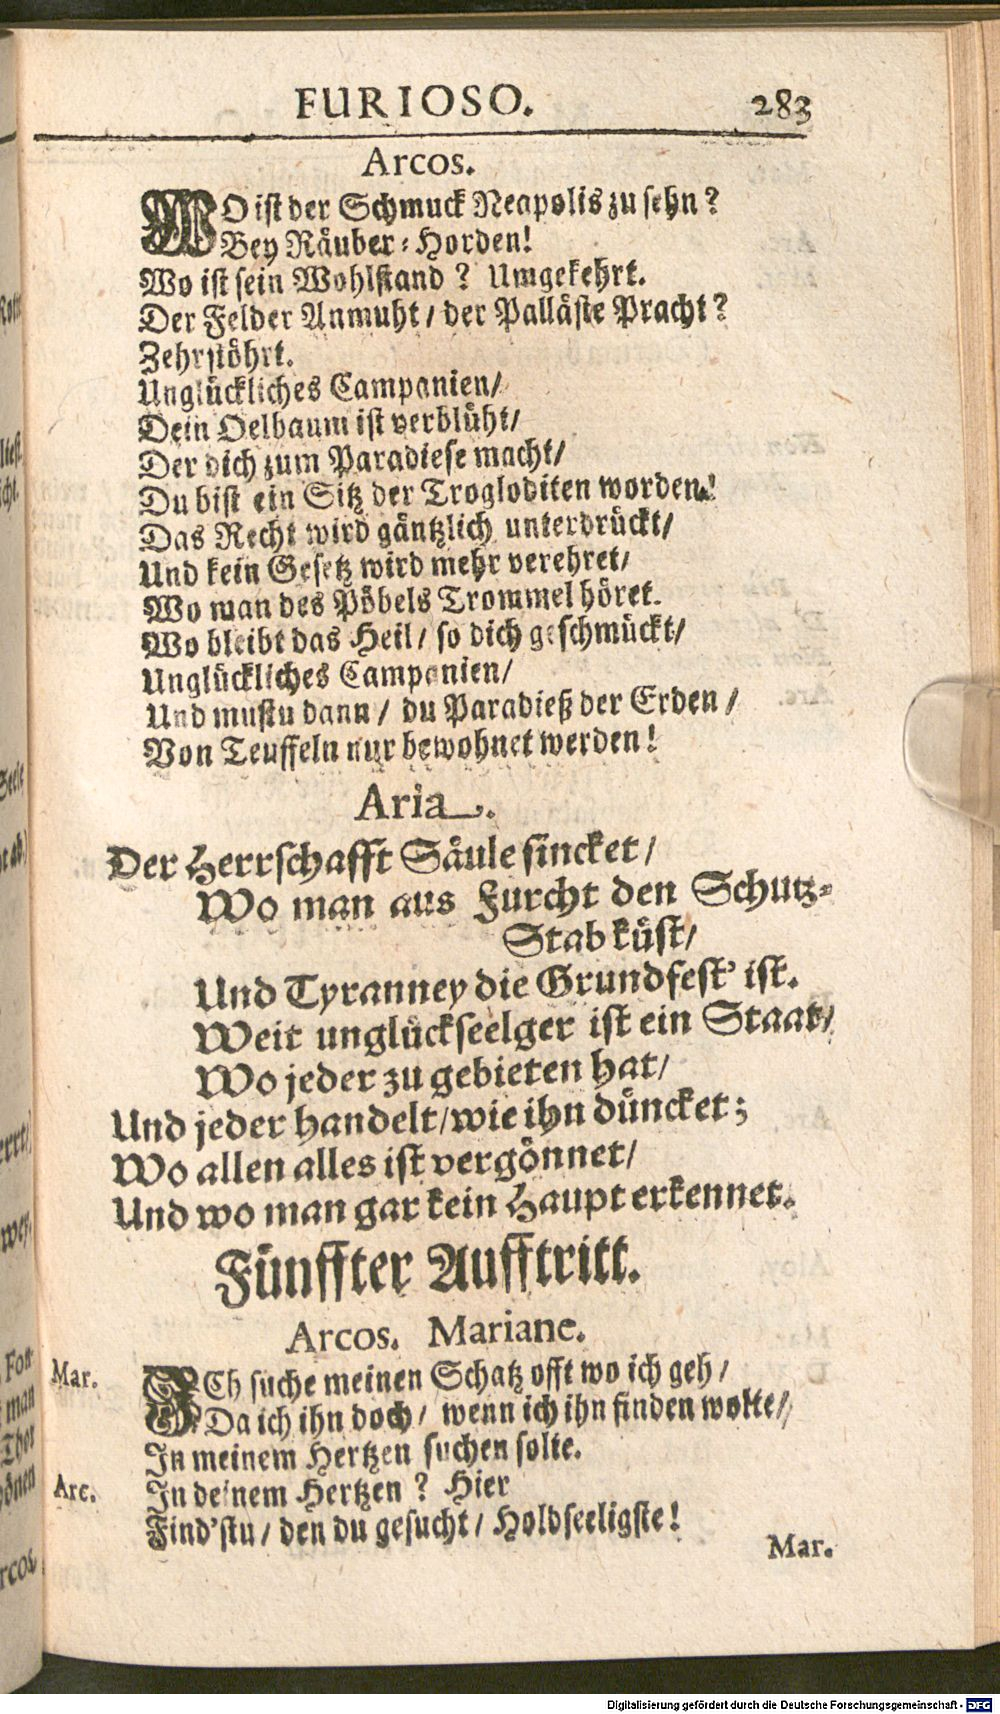 FURIOSO. 283
Arcos.
WO ist der Schmuck Neapolis zu sehn?
Bey Räuber-Horden!
Wo ist sein Wohlstand? Umgekehrt.
Der Felder Anmuht / der Palläste Pracht?
Zehrstöhrt.
Unglückliches Campanien/
Dein Oelbaum ist verblüht/
Der dich zum Paradiese macht/
Du bist ein Sitz der Trogloditen worden!
Das Recht wird gäntzlich unterdrückt/
Und kein Gesetz wird mehr verehret/
Wo man des Pöbels Trommel höret.
Wo bleibt das Heil / so dich geschmückt/
Unglückliches Campanien/
Und mustu dann / du Paradieß der Erden /
Von Teuffeln nur bewohnet werden!
Aria.
Der Herrschafft Säule sincket /
Wo man aus Furcht den Schutz-
Stab küst/
Und Tyranney die Grundfest' ist.
Weit unglückseelger ist ein Staat/
Wo jeder zu gebieten hat/
Und jeder handelt/wie ihn düncket;
Wo allen alles ist vergönnet/
Und wo man gar kein Haupt erkennet.
Fünffter Aufftritt.
Arcos. Mariane.
Mar. ICh suche meinen Schatz offt wo ich geh /
Da ich ihn doch / wenn ich ihn finden wolte/
In meinem Hertzen suchen solte.
Arc. In deinem Hertzen? Hier
Find'stu / den du gesucht / Holdseeligste!
Mar.
Digitalisierung gefördert durch die Deutsche Forschungsgemeinschaft - DFG